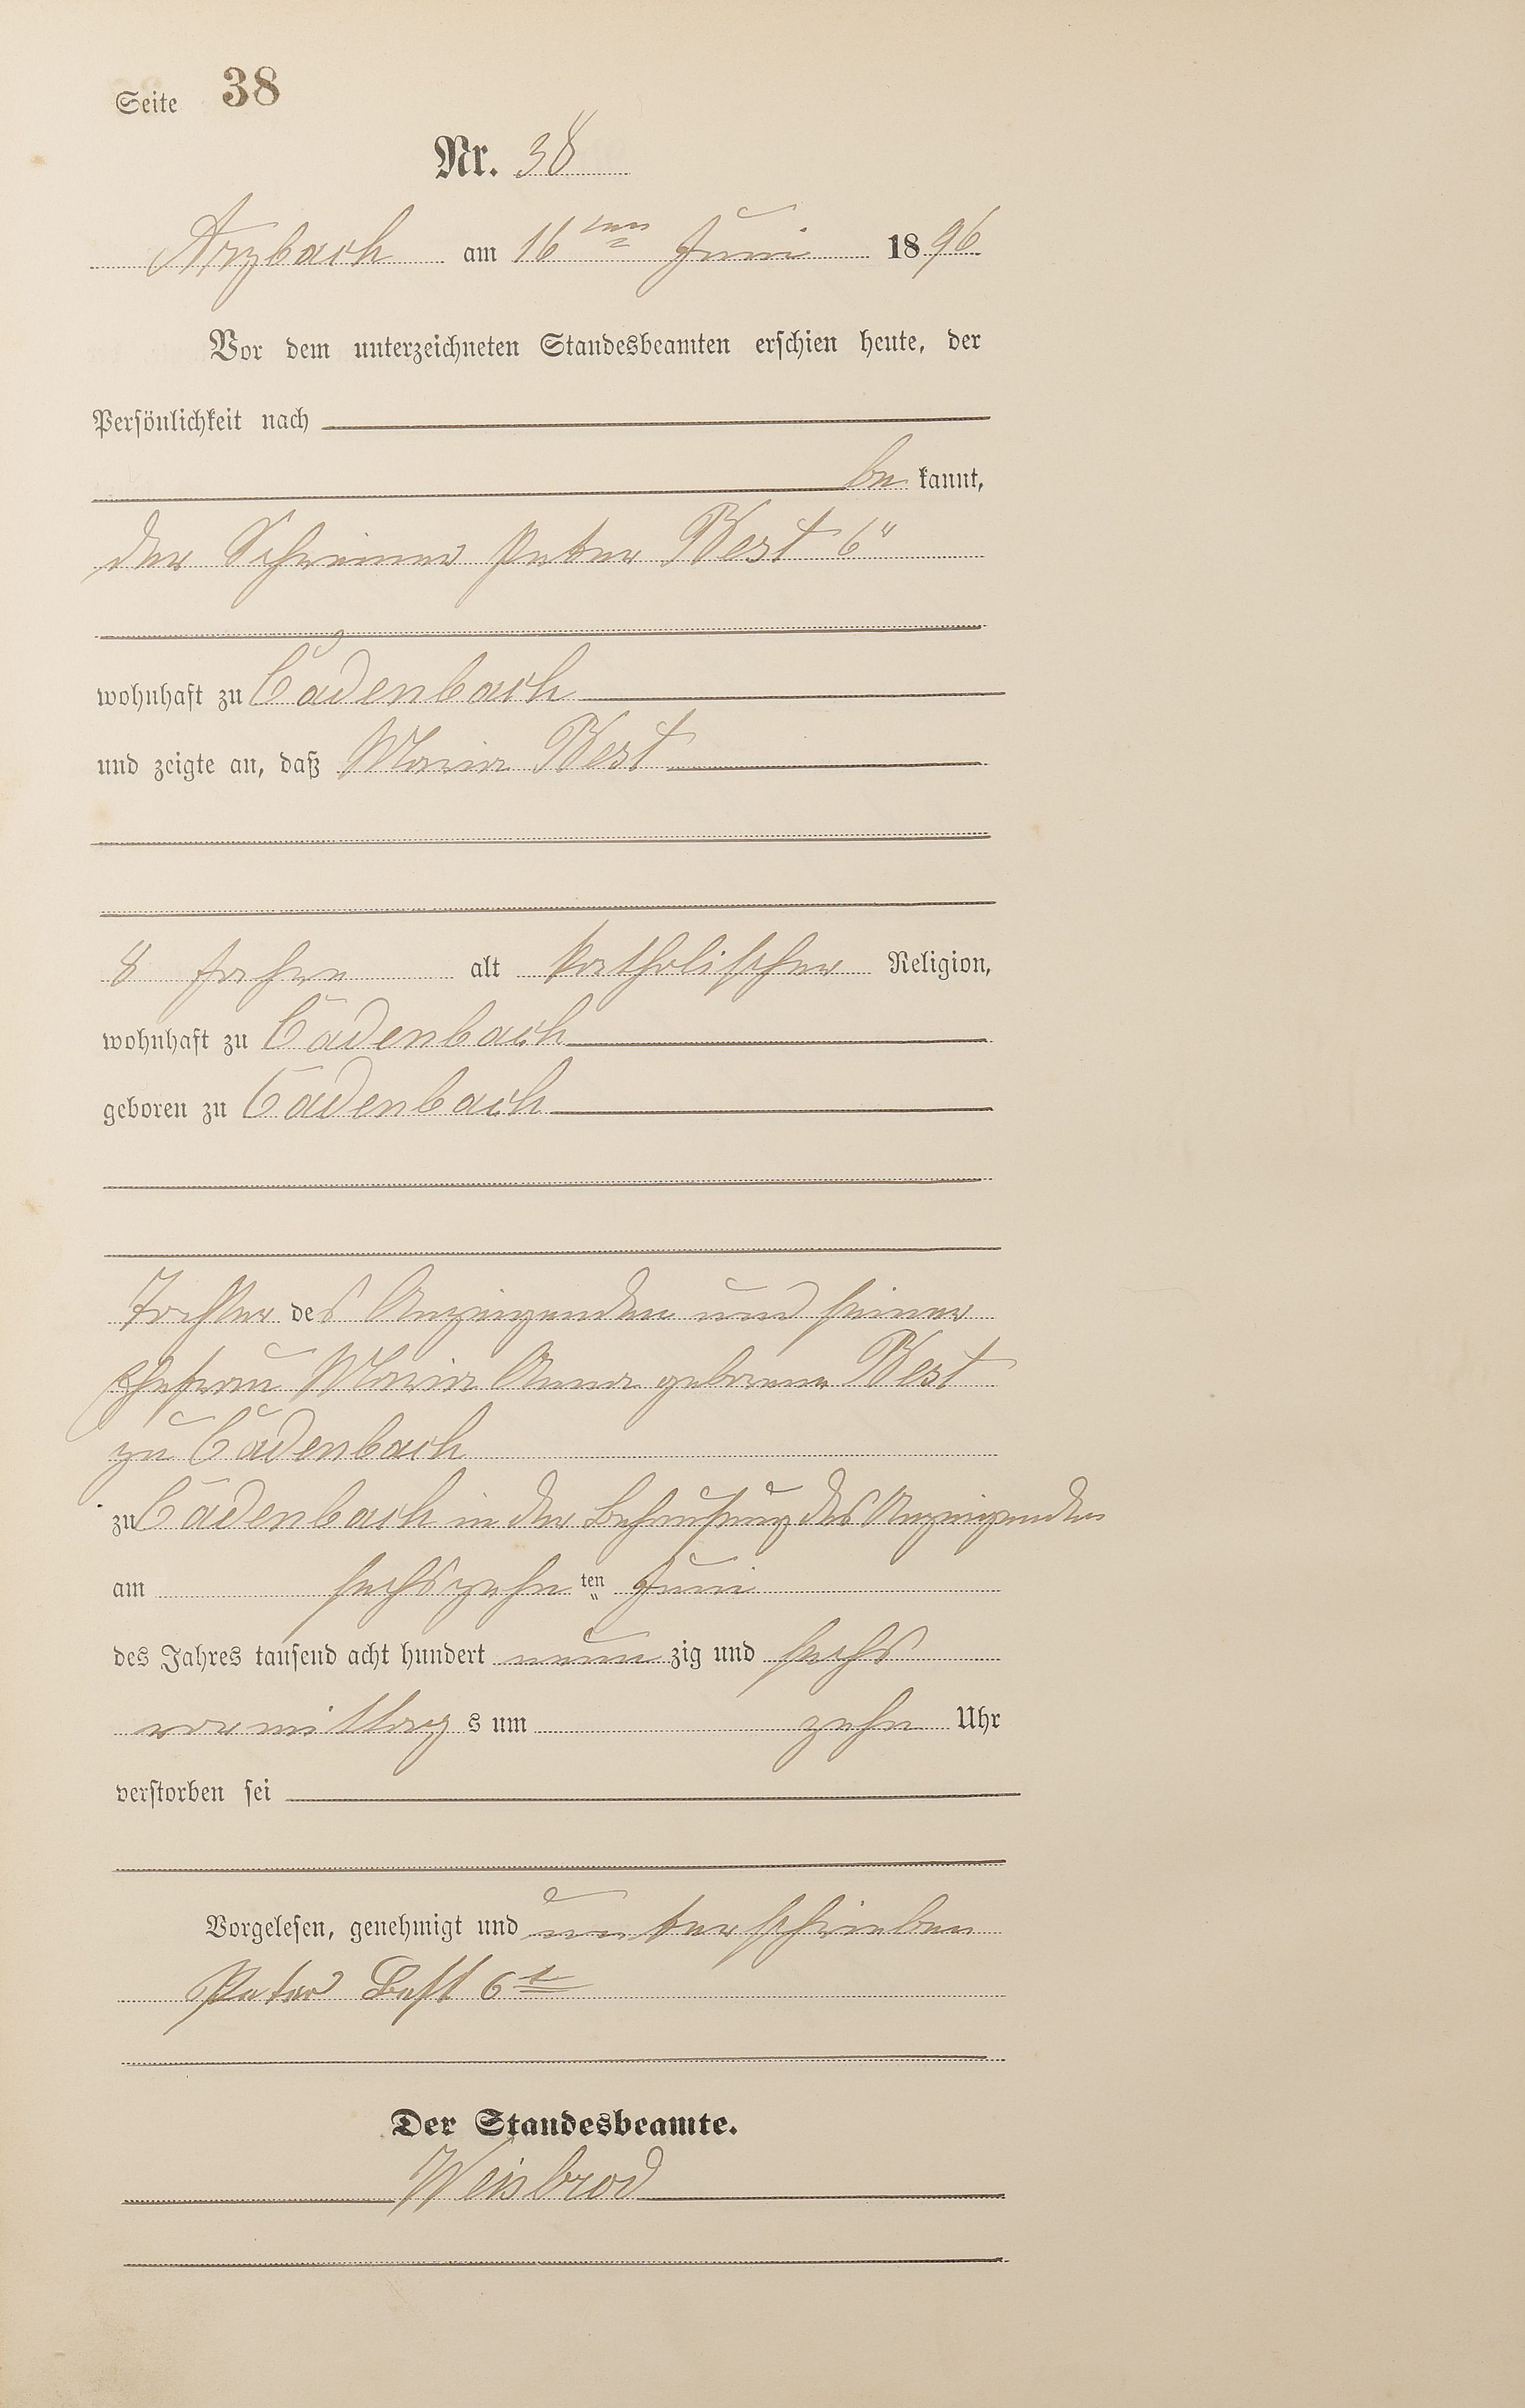 Seite 38
Nr. 38
Arzbach am 16ten Juni 1896
Vor dem unterzeichneten Standesbeamten erschien heute, der
Persönlichkeit nach
be kannt,
der Schreiner Peter Best 6"
wohnhaft zu Cadenbach
und zeigte an, daß Maria Best
8 Jahre alt katholischer Religion,
wohnhaft zu Cadenbach
geboren zu Cadenbach
Tochter des Anzeigenden und seiner
Ehefrau Maria Anna geborene Best
zu Cadenbach
zu Cadenbach in der Behausung des Anzeigenden
am sechszehn ten Juni
des Jahres tausend acht hundert neun zig und sechs
vormittag s um zehn Uhr
verstorben sei
Vorgelesen, genehmigt und unterschrieben
Peter Best 6t
Der Standesbeamte.
Weisbrod